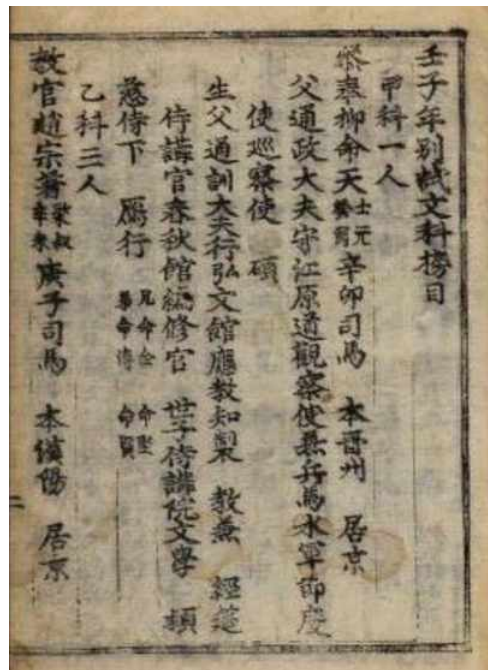 壬子年別試文科榜目
甲科一人
參奉柳命天 士元 癸酉 辛卯司馬 本晋州 居京
父通政大夫守江原道觀察使兼兵馬水軍節度
使巡察使 碩
生父通訓大夫行弘文館應教知製 教兼 經筵
侍講官春秋館編修官 世子侍講院文學 頴
慈侍下 鴈行 兄命全 弟命 命堅 命賢
乙科三人
教官趙宗著 叔 辛未 庚子司馬 本漢陽 居京
二